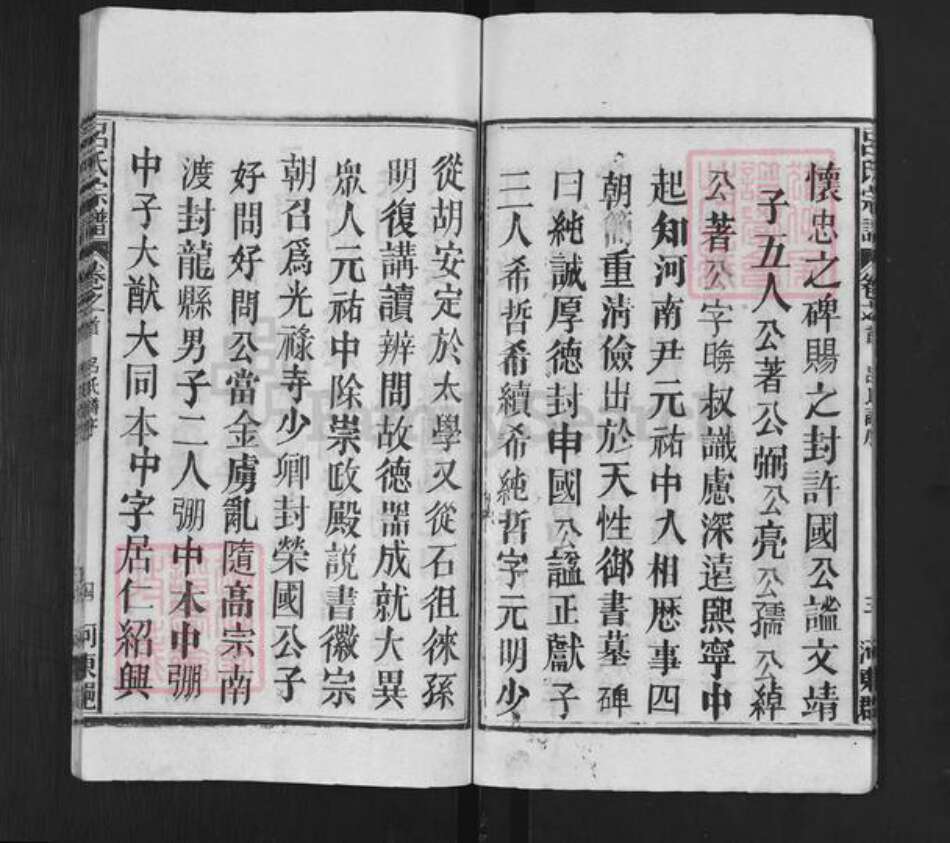 懷忠之碑賜之封許國公謚文靖
子五人公著公弼公亮公孺公綽
公著公字晦叔識慮深遠熙寧中
起知河南尹元祐中入相歴事四
朝簡重清儉出於天性御書墓碑
曰純誠厚德封申國公謚正獻子
三人希哲希續希純哲字元明少
三
河東郡
從胡安定於太學又從石徂徠孫
明復講讀辨問故德器成就大異
眾人元祐中除崇政殿說書徽宗
朝召爲光祿寺少卿封榮國公子
好問好問公當金虜亂隨高宗南
渡封龍縣男子二人弸中本中弸
中子大猷大同本中字居仁紹興
呂氏宗譜
卷之首
呂氏譜序
四
河東郡
FamilySearch